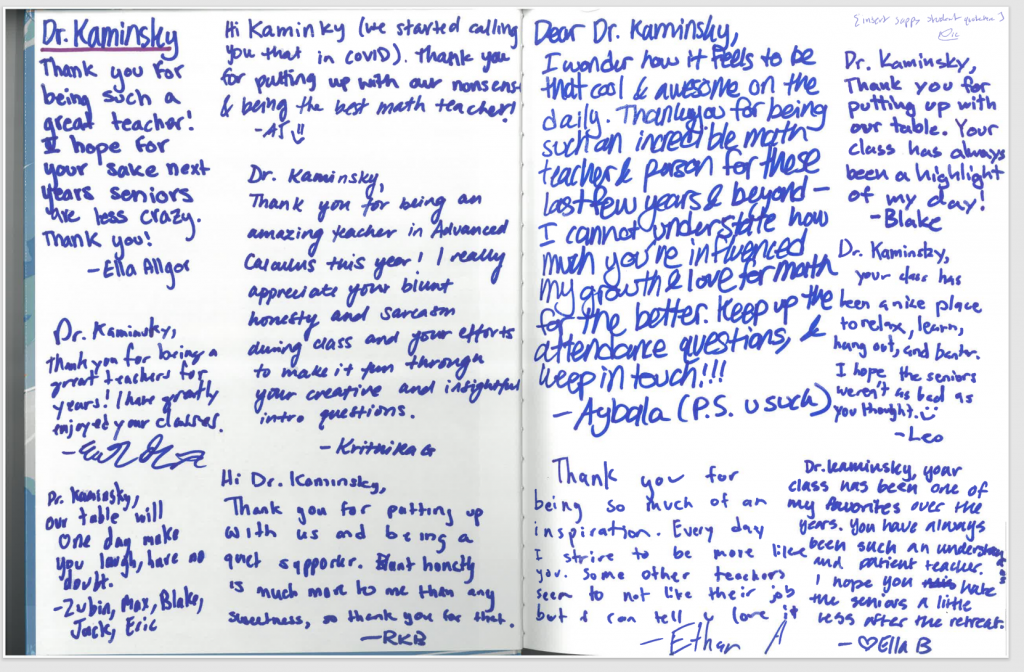 Dr. Kaminsky
Thank you for
being such a
great teacher!
I hope for
your sake next
years seniors
are less crazy.
Thank you!
-Ella Allgor
Dr. Kaminsky,
Thank you for being a
great teachers for
years! I have greatly
enjoyed your classes.
Dr. Kaminsky,
our table will
one day make
you laugh, have no
doubt.
-Zubin, Max, Blake,
Jack, Eric
Hi Kaminky (we started calling
you that in COVID). Thank you
for putting up with our nonsense
& being the best math teacher!
-AJ
Dr. Kaminsky,
Thank you for being an
amazing teacher in Advanced
Calculus this year! I really
appreciate your blunt
honesty and sarcasm
during class and your efforts
to make it fun through
your creative and insightful
intro questions.
-Krithika G
Hi Dr. Kaminsky,
Thank you for putting up
with us and being a
quiet supporter. Blunt honesty
is much more to me than any
sweetness, so thank you for that.
-RKB
Dear Dr. Kaminsky,
I wonder how it feels to be
that cool & awesome on the
daily. Thank you for being
such an incredible math
teacher & person for these
last few years & beyond-
I cannot understate how
much you're influenced
my growth & love for math
for the better. Keep up the
attendance questions, &
keep in touch!!!
-Aybala (P.S. u suck)
Thank you for
being so much of an
inspiration. Every day
I strive to be more like
you. Some other teachers
seem to not like their job
but i can tell u love it
-Ethan A
{insert sappy student quotation}
Dr. Kaminsky,
Thank you for
putting up with
our table. Your
class has always
been a highlight
of my day!
-Blake
Dr. Kaminsky,
your class has
been a nice place
to relax, learn,
hang out, and banter.
I hope the seniors
weren't as bad as
you thought. :)
-Leo
Dr. Kaminsky, your
class has been one of
my favorites over the
years. You have always
been such an understanding
and patient teacher.
I hope you hate
the seniors a little
less after the retreat.
-♡Ella B